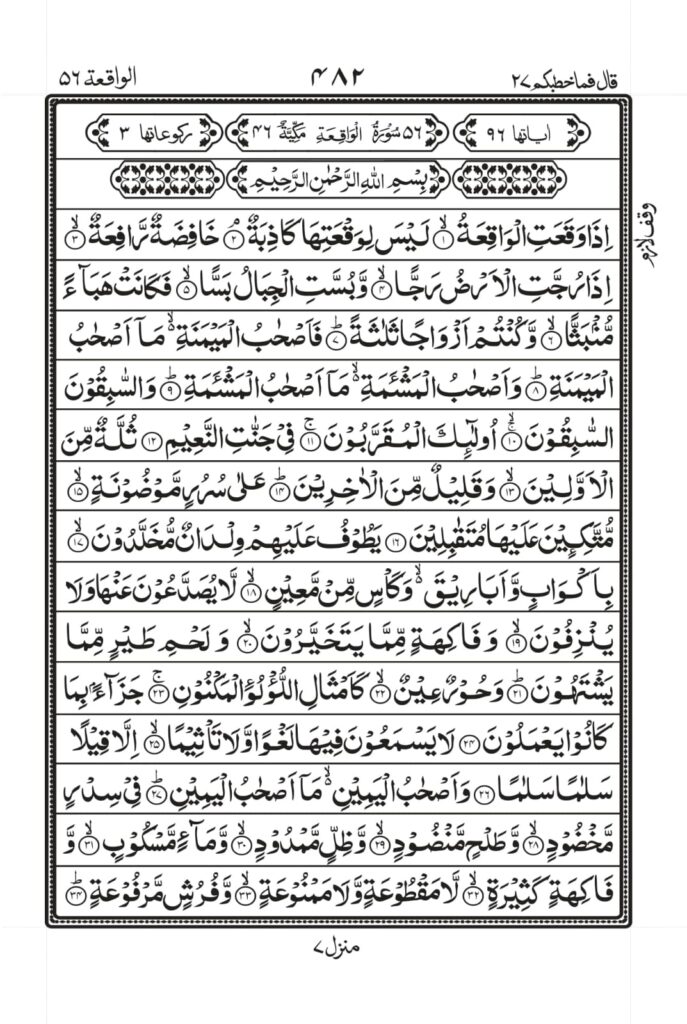 قال فما خطبکم ۲۷ ۴۸۲ الواقعة ۵۶
اٰیاتها ۹۶ ۵۶ سُوْرَةُ الْوَاقِعَةِ مَكِّيَّةٌ ۴۶ رکوعاتها ۳
بِسْمِ اللهِ الرَّحْمٰنِ الرَّحِيْمِ
اِذَا وَقَعَتِ الْوَاقِعَةُۙ۝۱ لَيْسَ لِوَقْعَتِهَا كَاذِبَةٌۘ۝۲ خَافِضَةٌ رَّافِعَةٌۙ۝۳
وقف لازم
اِذَا رُجَّتِ الْاَرْضُ رَجًّاۙ۝۴ وَّبُسَّتِ الْجِبَالُ بَسًّاۙ۝۵ فَكَانَتْ هَبَآءً
مُّنْۢبَثًّاۙ۝۶ وَّكُنْتُمْ اَزْوَاجًا ثَلٰثَةًؕ۝۷ فَاَصْحٰبُ الْمَيْمَنَةِ۬ۙ مَاۤ اَصْحٰبُ
الْمَيْمَنَةِؕ۝۸ وَاَصْحٰبُ الْمَشْـَٔمَةِ۬ۙ مَاۤ اَصْحٰبُ الْمَشْـَٔمَةِؕ۝۹ وَالسّٰبِقُوْنَ
السّٰبِقُوْنَۚۙ۝۱۰ اُولٰٓئِكَ الْمُقَرَّبُوْنَۚ۝۱۱ فِيْ جَنّٰتِ النَّعِيْمِ۝۱۲ ثُلَّةٌ مِّنَ
الْاَوَّلِيْنَۙ۝۱۳ وَقَلِيْلٌ مِّنَ الْاٰخِرِيْنَؕ۝۱۴ عَلٰى سُرُرٍ مَّوْضُوْنَةٍۙ۝۱۵
مُّتَّكِـِٕيْنَ عَلَيْهَا مُتَقٰبِلِيْنَ۝۱۶ يَطُوْفُ عَلَيْهِمْ وِلْدَانٌ مُّخَلَّدُوْنَۙ۝۱۷
بِاَكْوَابٍ وَّاَبَارِيْقَ۬ۙ وَكَاْسٍ مِّنْ مَّعِيْنٍۙ۝۱۸ لَّا يُصَدَّعُوْنَ عَنْهَا وَلَا
يُنْزِفُوْنَۙ۝۱۹ وَفَاكِهَةٍ مِّمَّا يَتَخَيَّرُوْنَۙ۝۲۰ وَلَحْمِ طَيْرٍ مِّمَّا
يَشْتَهُوْنَؕ۝۲۱ وَحُوْرٌ عِيْنٌۙ۝۲۲ كَاَمْثَالِ اللُّؤْلُؤِ الْمَكْنُوْنِۚ۝۲۳ جَزَآءًۢ بِمَا
كَانُوْا يَعْمَلُوْنَ۝۲۴ لَا يَسْمَعُوْنَ فِيْهَا لَغْوًا وَّلَا تَاْثِيْمًاۙ۝۲۵ اِلَّا قِيْلًا
سَلٰمًا سَلٰمًا۝۲۶ وَاَصْحٰبُ الْيَمِيْنِ۬ۙ مَاۤ اَصْحٰبُ الْيَمِيْنِؕ۝۲۷ فِيْ سِدْرٍ
مَّخْضُوْدٍۙ۝۲۸ وَّطَلْحٍ مَّنْضُوْدٍۙ۝۲۹ وَّظِلٍّ مَّمْدُوْدٍۙ۝۳۰ وَّمَآءٍ مَّسْكُوْبٍۙ۝۳۱ وَّ
فَاكِهَةٍ كَثِيْرَةٍۙ۝۳۲ لَّا مَقْطُوْعَةٍ وَّلَا مَمْنُوْعَةٍۙ۝۳۳ وَّفُرُشٍ مَّرْفُوْعَةٍؕ۝۳۴
منزل ۷